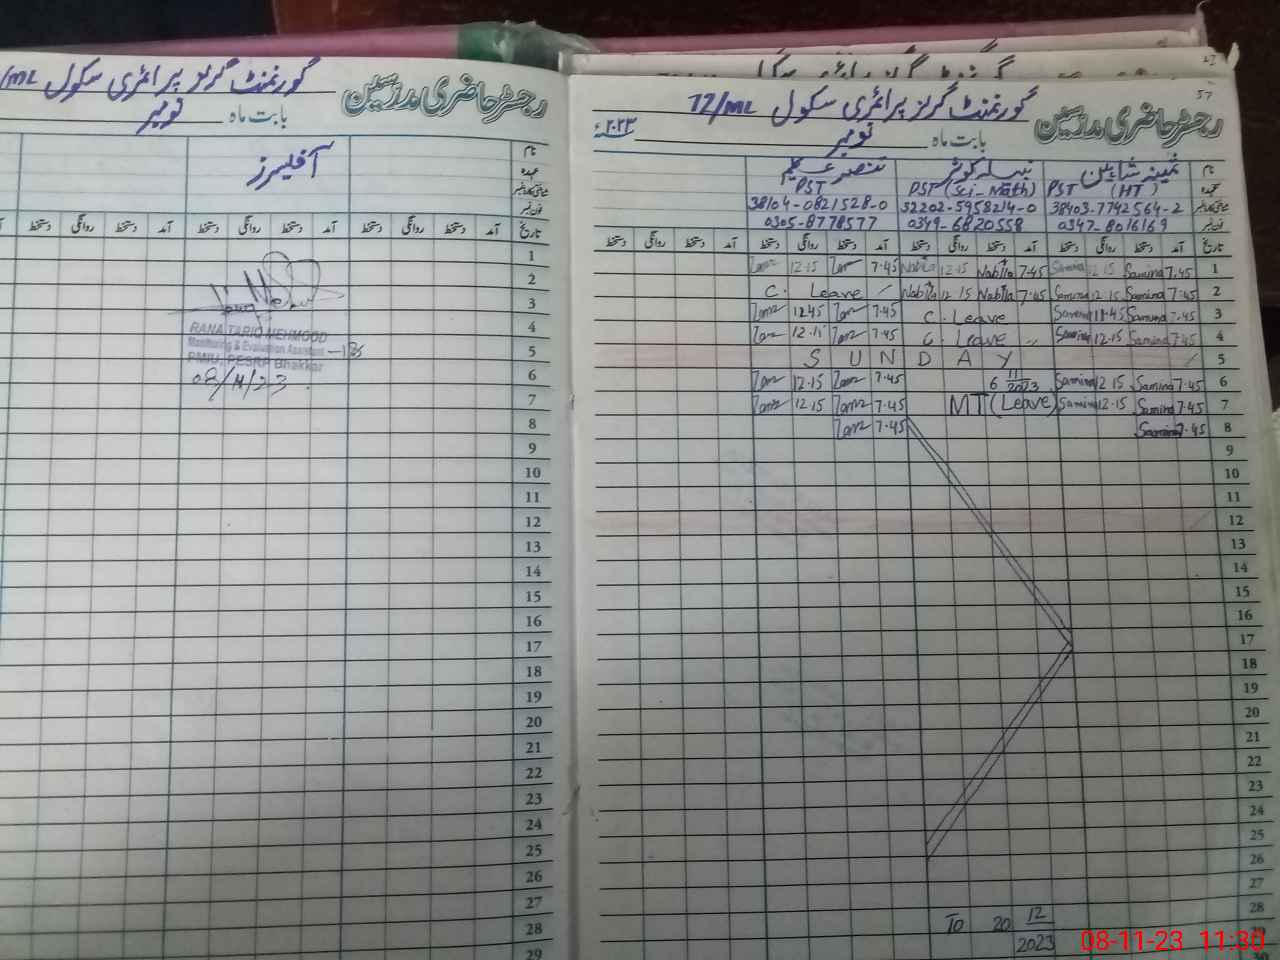 رجسٹر حاضری مدرسین
گورنمنٹ گرلز پرائمری سکول /ML
بابت ماہ نومبر
نام
عہدہ
آفیسرز
تاریخ آمد دستخط روانگی دستخط آمد دستخط روانگی دستخط آمد دستخط روانگی دستخط
1
2
3
4
5
6
7
8
9
10
11
12
13
14
15
16
17
18
19
20
21
22
23
24
25
26
27
28
29
RANA TARIQ MEHMOOD
Monitoring & Evaluation Assistant -13
PMIU, PESRP Bhakkar
08/11/23
57
رجسٹر حاضری مدرسین
گورنمنٹ گرلز پرائمری سکول 72/ML
بابت ماہ نومبر ۲۰۲۳ء
نام ثمینہ شاہین نبیلہ کوثر
عہدہ PST (HT) PST (Sci-Math) PST
38403-7742564-2 32202-5958214-0 38104-0821528-0
فون نمبر 0347-8016169 0349-6820558 0305-8778577
تاریخ آمد دستخط روانگی دستخط آمد دستخط روانگی دستخط آمد دستخط روانگی دستخط آمد دستخط روانگی دستخط
1 7.45 Samina 12.15 Samina 7.45 Nabila 12.15 Nabila 7.45 12.15
2 7.45 Samina 12.15 Samina 7.45 Nabila 12.15 Nabila C. Leave
3 7.45 Samina 11.45 Samina C. Leave 7.45 12.45
4 7.45 Samina 12.15 Samina C. Leave 7.45 12.15
5 SUNDAY
6 7.45 Samina 12.15 Samina 6 11/2023 7.45 12.15
7 7.45 Samina 12.15 Samina MT (Leave) 7.45 12.15
8 7.45 Samina 7.45
9
10
11
12
13
14
15
16
17
18
19
20
21
22
23
24
25
26
27
28
29
30
To 20 12/2023
08-11-23 11:30